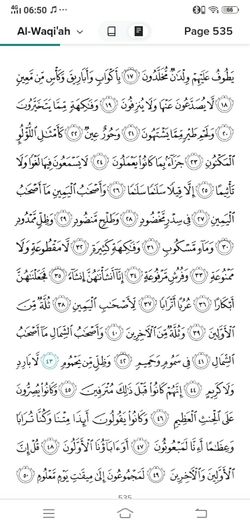 06:50
66
Al-Waqi'ah
Page 535
يَطُوفُ عَلَيْهِمْ وِلْدَٰنٌ مُّخَلَّدُونَ ١٧ بِأَكْوَابٍ وَأَبَارِيقَ وَكَأْسٍ مِّن مَّعِينٍ
١٨ لَّا يُصَدَّعُونَ عَنْهَا وَلَا يُنزِفُونَ ١٩ وَفَٰكِهَةٍ مِّمَّا يَتَخَيَّرُونَ
٢٠ وَلَحْمِ طَيْرٍ مِّمَّا يَشْتَهُونَ ٢١ وَحُورٌ عِينٌ ٢٢ كَأَمْثَٰلِ ٱللُّؤْلُؤِ
ٱلْمَكْنُونِ ٢٣ جَزَآءًۢ بِمَا كَانُوا۟ يَعْمَلُونَ ٢٤ لَا يَسْمَعُونَ فِيهَا لَغْوًا وَلَا
تَأْثِيمًا ٢٥ إِلَّا قِيلًا سَلَٰمًا سَلَٰمًا ٢٦ وَأَصْحَٰبُ ٱلْيَمِينِ مَآ أَصْحَٰبُ
ٱلْيَمِينِ ٢٧ فِى سِدْرٍ مَّخْضُودٍ ٢٨ وَطَلْحٍ مَّنضُودٍ ٢٩ وَظِلٍّ مَّمْدُودٍ
٣٠ وَمَآءٍ مَّسْكُوبٍ ٣١ وَفَٰكِهَةٍ كَثِيرَةٍ ٣٢ لَّا مَقْطُوعَةٍ وَلَا
مَمْنُوعَةٍ ٣٣ وَفُرُشٍ مَّرْفُوعَةٍ ٣٤ إِنَّآ أَنشَأْنَٰهُنَّ إِنشَآءً ٣٥ فَجَعَلْنَٰهُنَّ
أَبْكَارًا ٣٦ عُرُبًا أَتْرَابًا ٣٧ لِّأَصْحَٰبِ ٱلْيَمِينِ ٣٨ ثُلَّةٌ مِّنَ
ٱلْأَوَّلِينَ ٣٩ وَثُلَّةٌ مِّنَ ٱلْءَاخِرِينَ ٤٠ وَأَصْحَٰبُ ٱلشِّمَالِ مَآ أَصْحَٰبُ
ٱلشِّمَالِ ٤١ فِى سَمُومٍ وَحَمِيمٍ ٤٢ وَظِلٍّ مِّن يَحْمُومٍ ٤٣ لَّا بَارِدٍ
وَلَا كَرِيمٍ ٤٤ إِنَّهُمْ كَانُوا۟ قَبْلَ ذَٰلِكَ مُتْرَفِينَ ٤٥ وَكَانُوا۟ يُصِرُّونَ
عَلَى ٱلْحِنثِ ٱلْعَظِيمِ ٤٦ وَكَانُوا۟ يَقُولُونَ أَئِذَا مِتْنَا وَكُنَّا تُرَابًا
وَعِظَٰمًا أَءِنَّا لَمَبْعُوثُونَ ٤٧ أَوَءَابَآؤُنَا ٱلْأَوَّلُونَ ٤٨ قُلْ إِنَّ
ٱلْأَوَّلِينَ وَٱلْءَاخِرِينَ ٤٩ لَمَجْمُوعُونَ إِلَىٰ مِيقَٰتِ يَوْمٍ مَّعْلُومٍ ٥٠
535